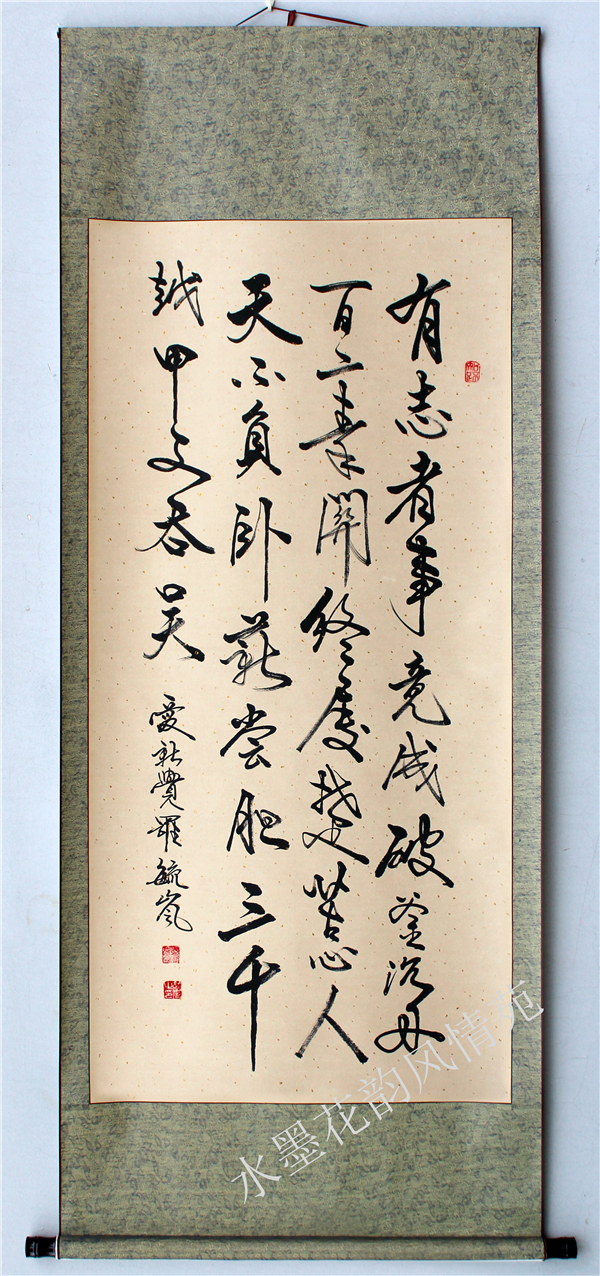 有志者事竟成破釜沉舟
百二秦關終屬楚苦心人
天不負臥薪尝胆三千
越甲吞吴
愛新覺羅毓嵐
水墨花韵风情苑